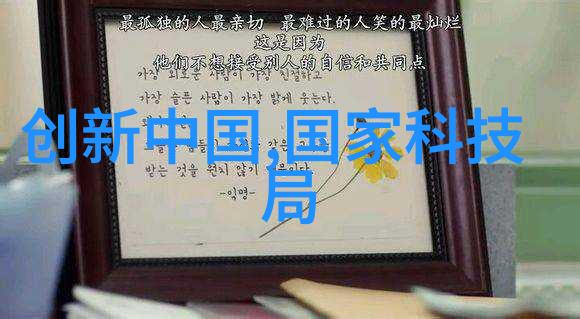 最孤独的人最亲切 最难过的人笑的最灿烂
这是因为
他们不想接受别人的自信和共同点
가장 외로운 사람이 가장 친절하고
가장 슬픈 사람이 가장 밝게 웃는다.
创新中国,国家科技
局
같은
받는 것을 원치 않기
-익명-